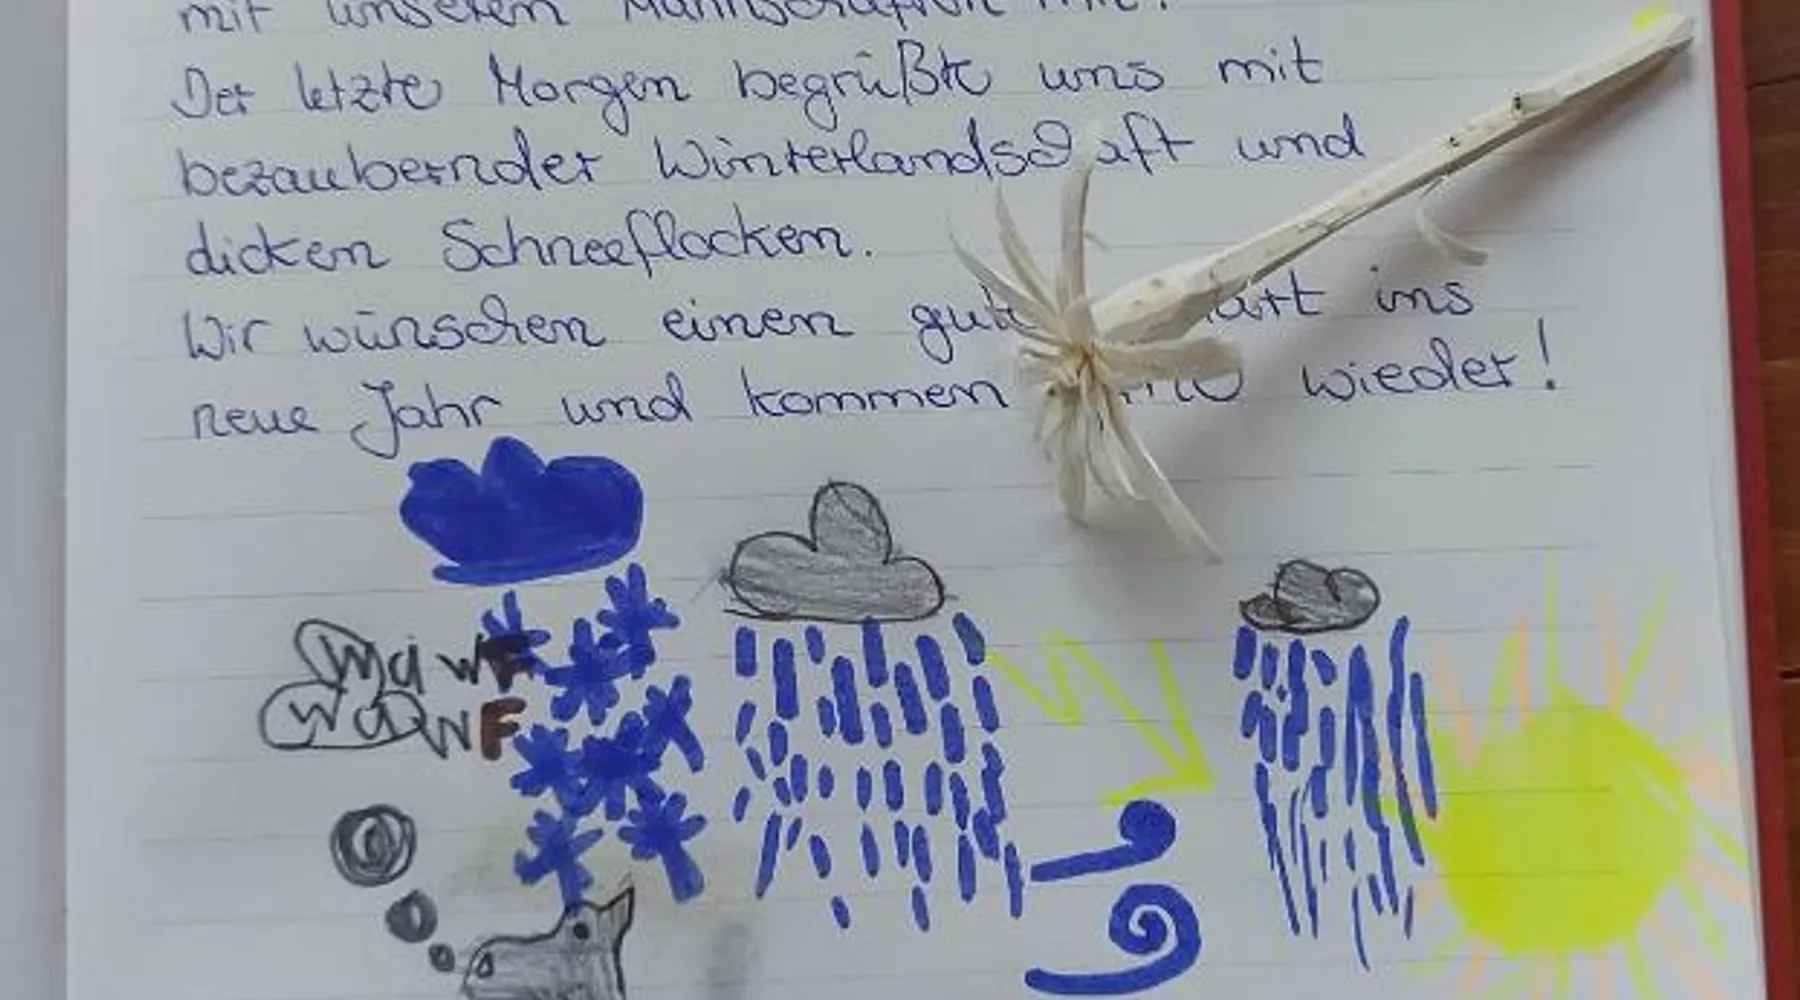 mit unseren Mannschaften mit!
Der letzte Morgen begrüßte uns mit
bezaubernder Winterlandschaft und
dicken Schneeflocken.
Wir wünschen einen ins
neue Jahr und kommen wieder!
WAWF